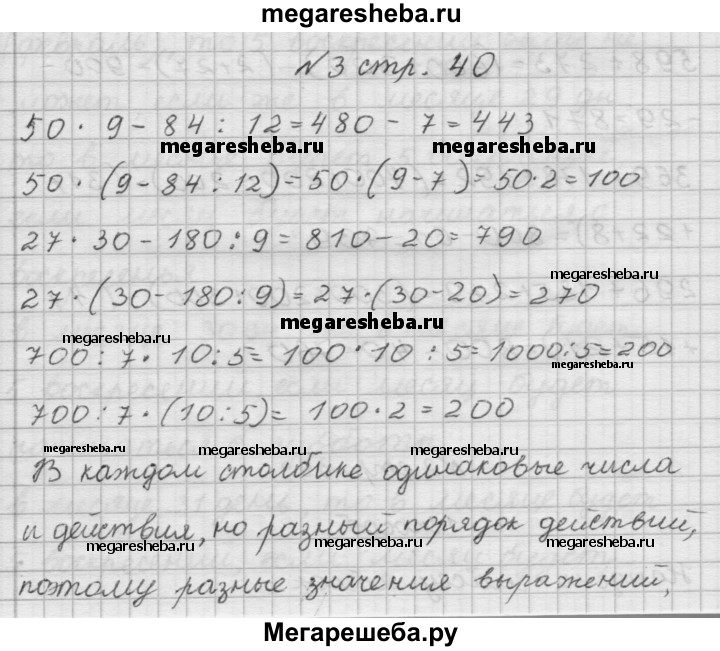 megaresheba.ru
N3 стр. 40
50 · 9 - 84 : 12 = 480 - 7 = 443
megaresheba.ru megaresheba.ru
50 · (9 - 84 : 12) = 50 · (9 - 7) = 50 · 2 = 100
27 · 30 - 180 : 9 = 810 - 20 = 790
megaresheba.ru
27 · (30 - 180 : 9) = 27 · (30 - 20) = 270
megaresheba.ru megaresheba.ru
700 : 7 · 10 : 5 = 100 · 10 : 5 = 1000 : 5 = 200
700 : 7 · (10 : 5) = 100 · 2 = 200
megaresheba.ru megaresheba.ru megaresheba.ru
В каждом столбике одинаковые числа
и действия, но разный порядок действий,
megaresheba.ru megaresheba.ru megaresheba.ru
поэтому разные значения выражений,
megaresheba.ru megaresheba.ru megaresheba.ru
Мегарешеба.ру